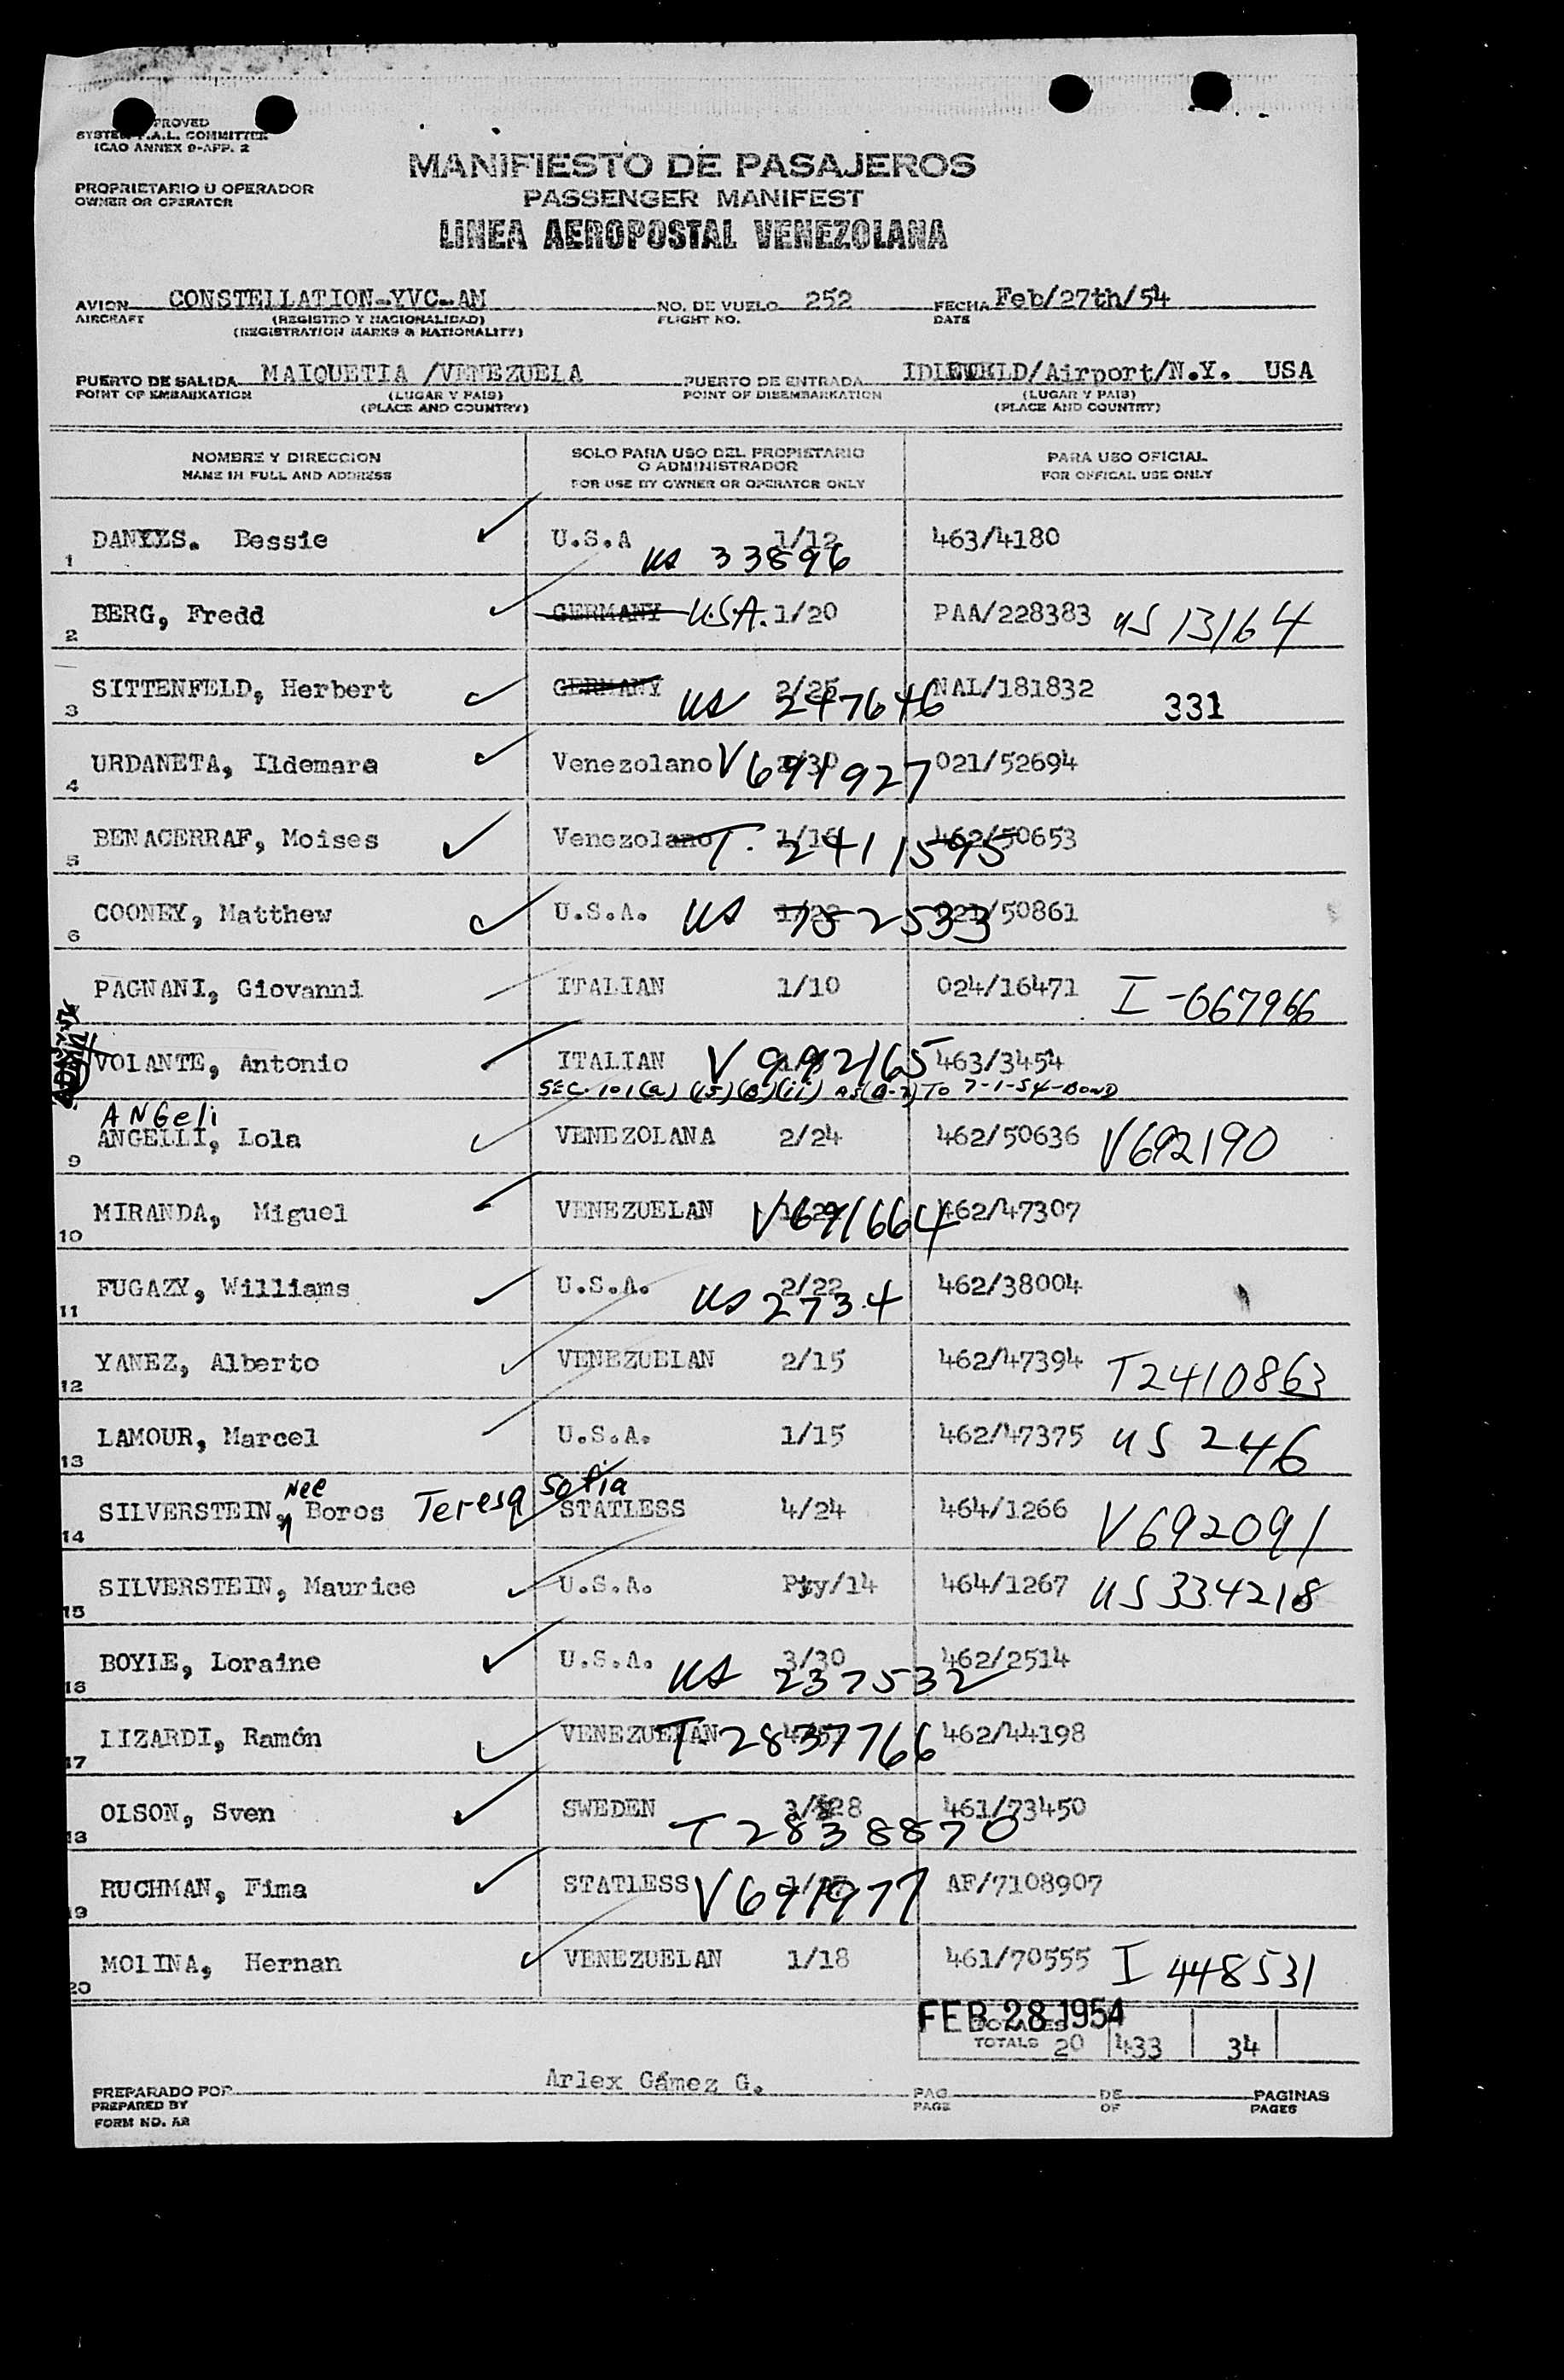 PROVED
SYSTEM F.A.L. COMMITTEE
ICAO ANNEX 9-APP. 2
PROPRIETARIO U OPERADOR
OWNER OR OPERATOR
MANIFIESTO DE PASAJEROS
PASSENGER MANIFEST
LINEA AEROPOSTAL VENEZOLANA
AVION CONSTELLATION-YVC-AM NO. DE VUELO 252 FECHA Feb/27th/54
AIRCRAFT (REGISTRO Y NACIONALIDAD) FLIGHT NO. DATE
(REGISTRATION MARKS & NATIONALITY)
PUERTO DE SALIDA MAIQUETIA /VENEZUELA PUERTO DE ENTRADA IDLEWILD/Airport/N.Y. USA
POINT OF EMBARKATION (LUGAR Y PAIS) POINT OF DISEMBARKATION (LUGAR Y PAIS)
(PLACE AND COUNTRY) (PLACE AND COUNTRY)
NOMBRE Y DIRECCION SOLO PARA USO DEL PROPIETARIO O ADMINISTRADOR PARA USO OFICIAL
NAME IN FULL AND ADDRESS FOR USE BY OWNER OR OPERATOR ONLY FOR OFFICAL USE ONLY
1 Bessie U.S.A 1/12 463/4180
US 33896
2 BERG, Fredd GERMANY U.S.A. 1/20 PAA/228383 US 13164
3 SITTENFELD, Herbert GERMANY 2/25 NAL/181832
US 247646 331
4 URDANETA, Ildemara Venezolano V691927 021/52694
5 BENACERRAF, Moises Venezolano T. 2411595 1/16 462/50653
6 COONEY, Matthew U.S.A. US 752533 021/50861
PAGNANI, Giovanni ITALIAN 1/10 024/16471 I-067966
VOLANTE, Antonio ITALIAN V992165 463/3454
SEC. 101(a) (15)(B)(ii) AS (B-2) TO 7-1-54-BOND
ANGeli
9 ANGELLI, Lola VENEZOLANA 2/24 462/50636 V692190
10 MIRANDA, Miguel VENEZUELAN V691664 462/47307
11 FUGAZY, Williams U.S.A. 2/22 462/38004
US 2734
12 YANEZ, Alberto VENEZUELAN 2/15 462/47394 T2410863
13 LAMOUR, Marcel U.S.A. 1/15 462/47375 US 246
14 SILVERSTEIN, Nee Boros Teresa Sofia STATLESS 4/24 464/1266 V692091
15 SILVERSTEIN, Maurice U.S.A. Pty/14 464/1267 US 334218
16 BOYLE, Loraine U.S.A. 3/30 462/2514
US 237532
17 LIZARDI, Ramón VENEZUELAN T. 2837766 462/44198
18 OLSON, Sven SWEDEN 461/73450
T 2838870
19 RUCHMAN, Fima STATLESS V691977 AF/7108907
20 MOLINA, Hernan VENEZUELAN 1/18 461/70555 I 448531
FEB 28 1954
TOTALES
TOTALS 20 433 34
Arlex Gámez G.
PREPARADO POR PAG. DE PAGINAS
PREPARED BY PAGE OF PAGES
FORM NO. AR